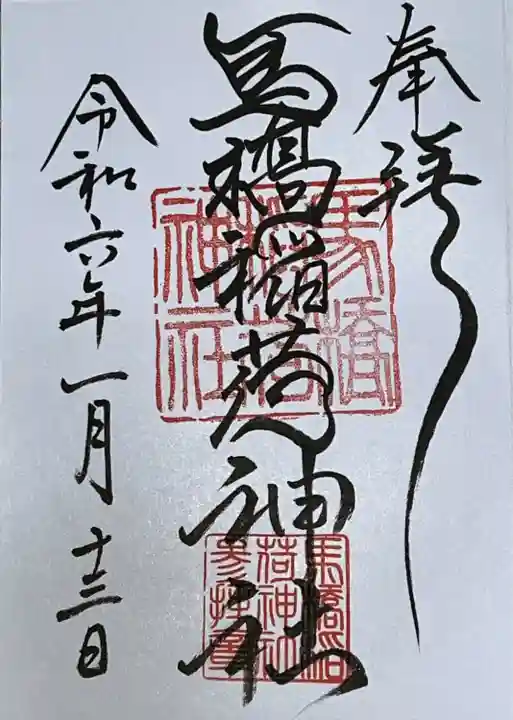 奉拝
馬橋稲荷神社
令和六年一月十三日
馬橋
稲荷
神社
馬橋稲
荷神社
参拝章